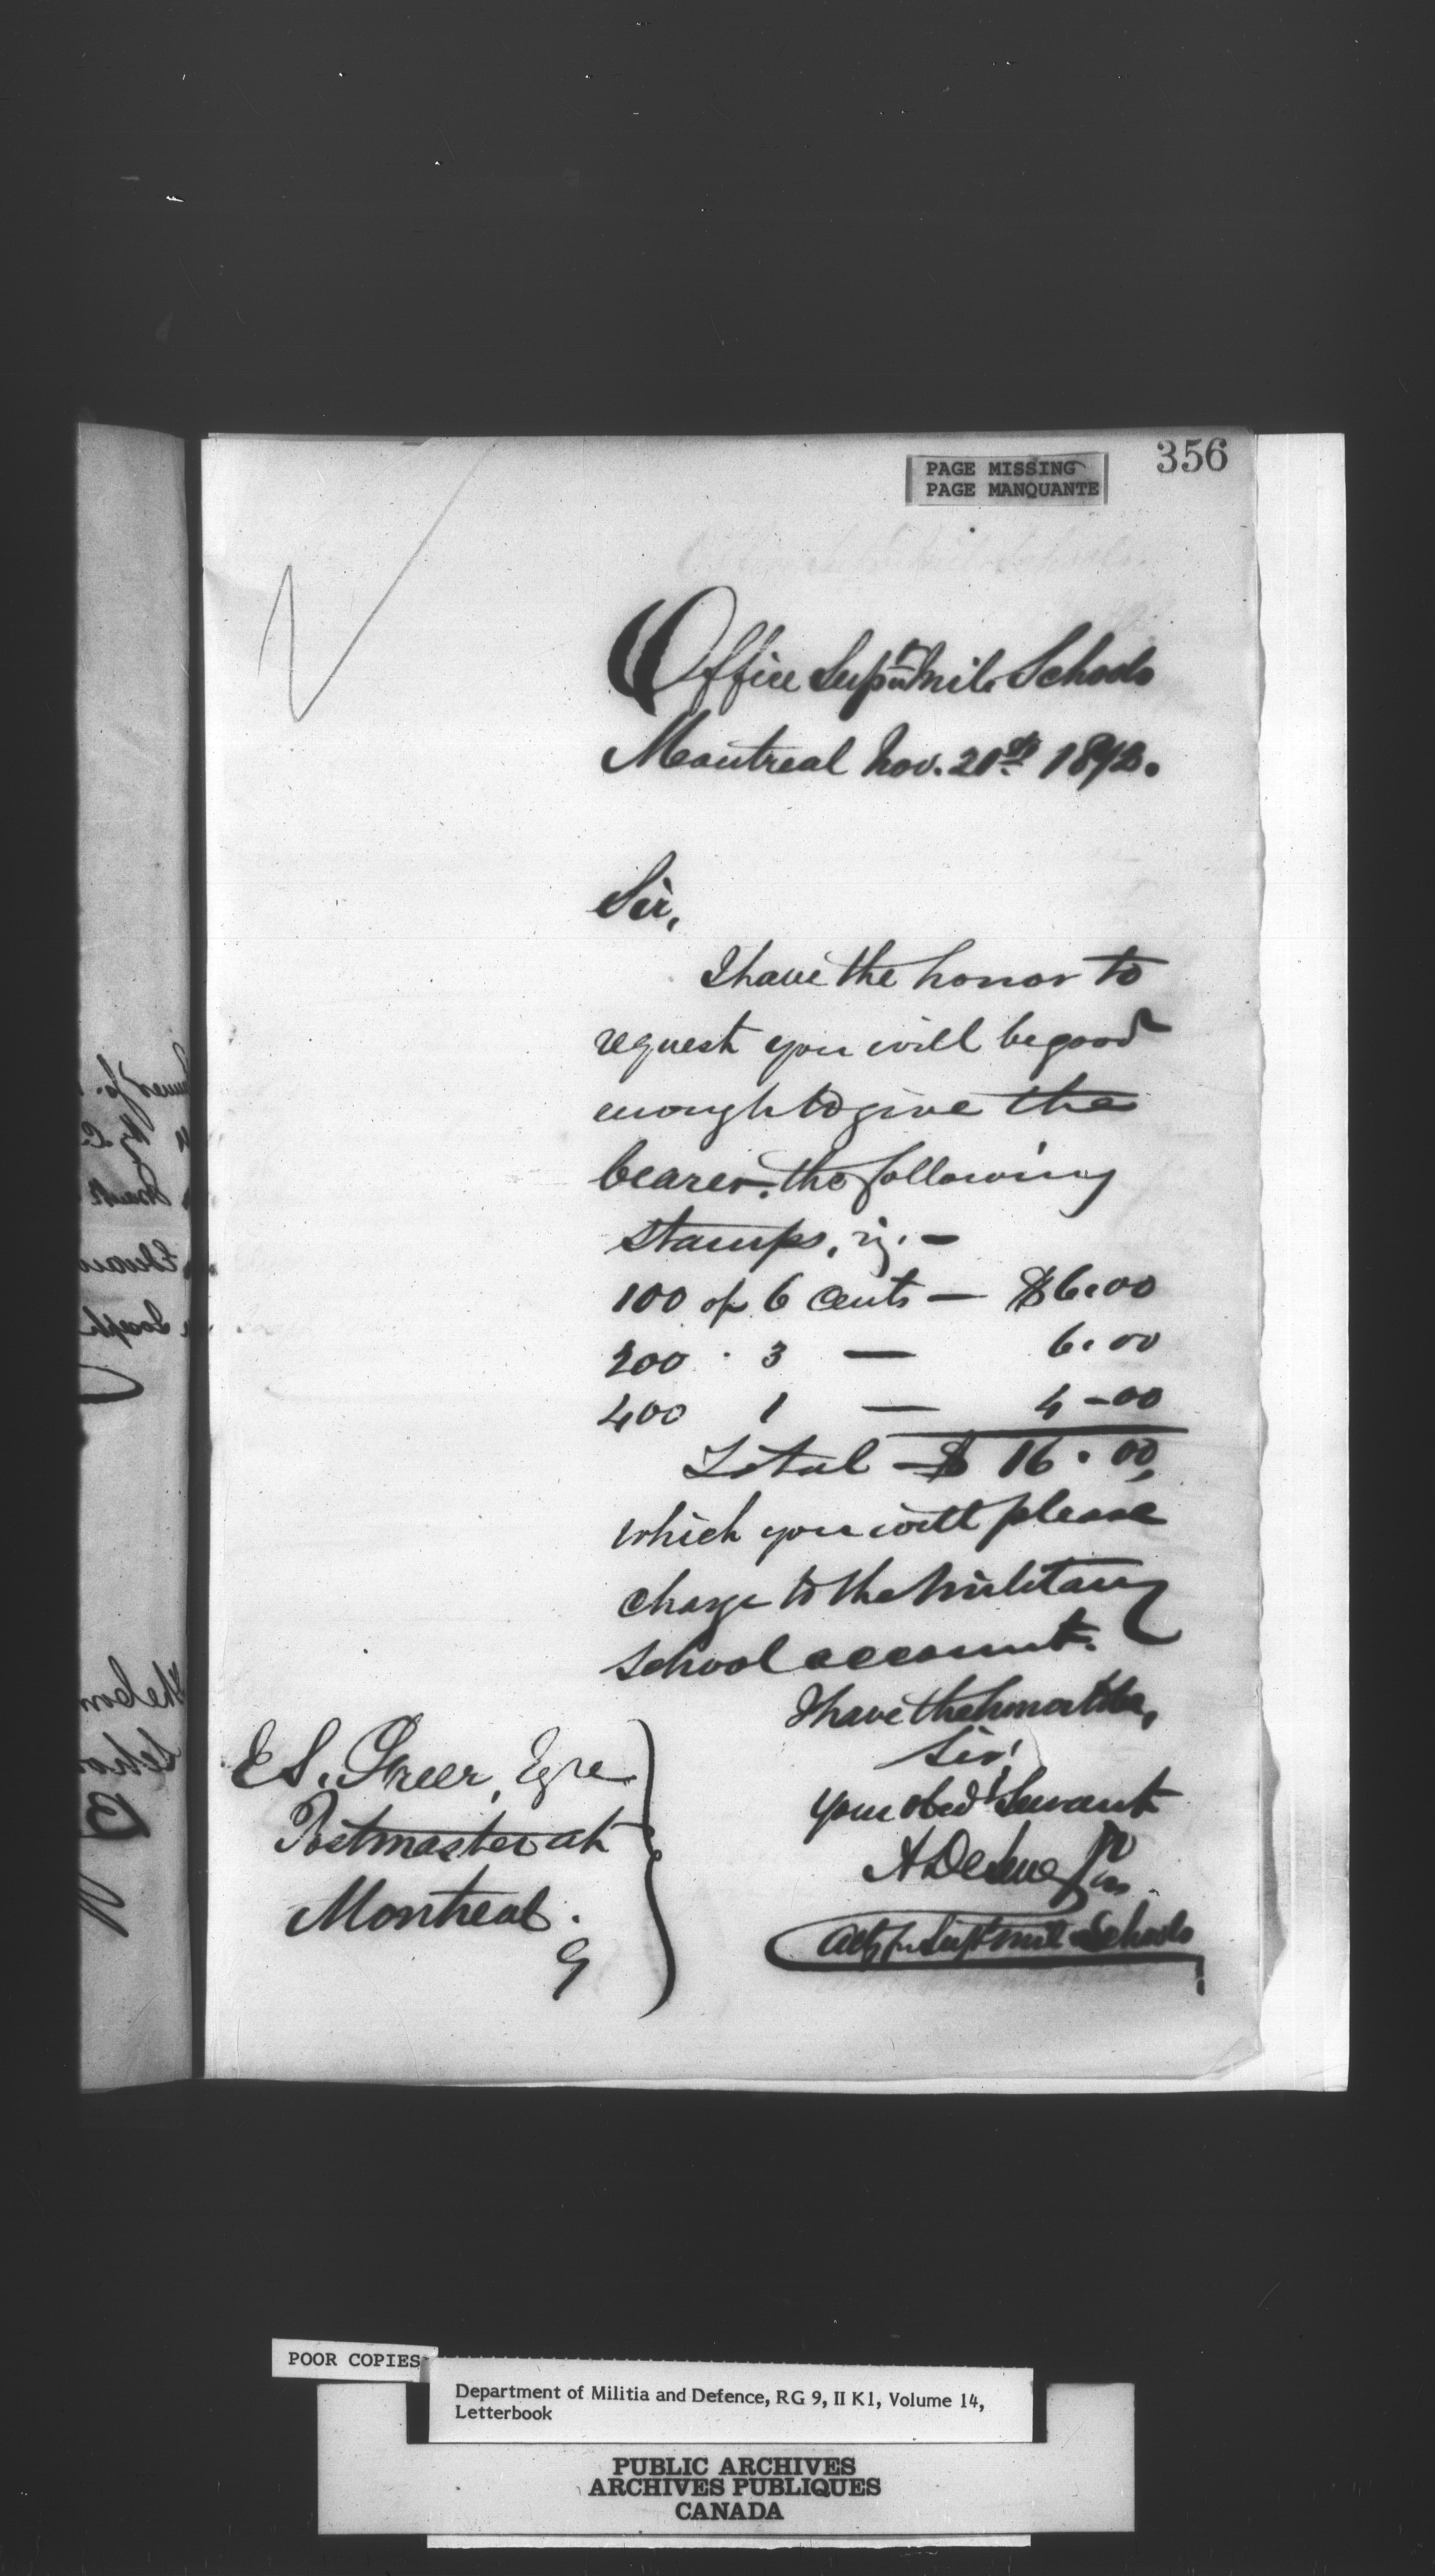 356
PAGE MISSING
PAGE MANQUANTE
Office Supt Mil. Schools
Montreal Nov. 21st 1872.
Sir,
I have the honor to
request you will be good
enough to give the
bearer, the following
stamps, viz. —
100 of 6 cents — $6.00
200 · 3 — 6.00
400 1 — 4-00
Total — $ 16.00,
which you will please
charge to the Military
School account.
I have the honor to be,
Sir,
your obedt Servant
E S. Freer, Eqre
Postmaster at
Montreal.
Supt Mil Schools
POOR COPIES
Department of Militia and Defence, RG 9, II K1, Volume 14,
Letterbook
PUBLIC ARCHIVES
ARCHIVES PUBLIQUES
CANADA